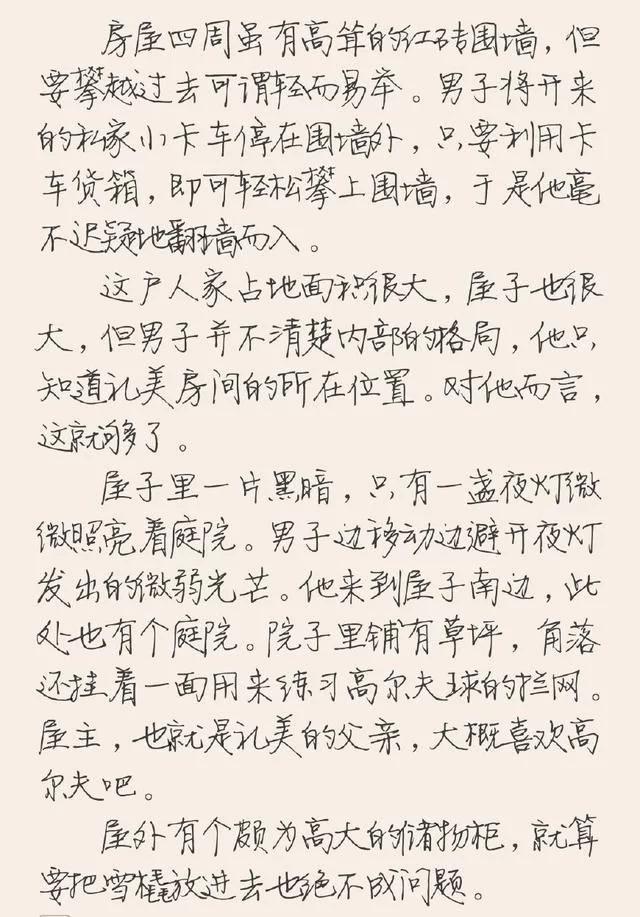 房屋四周虽有高耸的红砖围墙，但
要攀越过去可谓轻而易举。男子将开来
的私家小卡车停在围墙外，只要利用卡
车货箱，即可轻松攀上围墙，于是他毫
不迟疑地翻墙而入。
这户人家占地面积很大，屋子也很
大，但男子并不清楚内部的格局，他只
知道礼美房间的所在位置。对他而言，
这就够了。
屋子里一片黑暗，只有一盏夜灯微
微照亮着庭院。男子边移动边避开夜灯
发出的微弱光芒。他来到屋子南边，此
处也有个庭院。院子里铺有草坪，角落
还挂着一面用来练习高尔夫球的拦网。
屋主，也就是礼美的父亲，大概喜欢高
尔夫吧。
屋外有个颇为高大的储物柜，就算
要把雪橇放进去也绝不成问题。